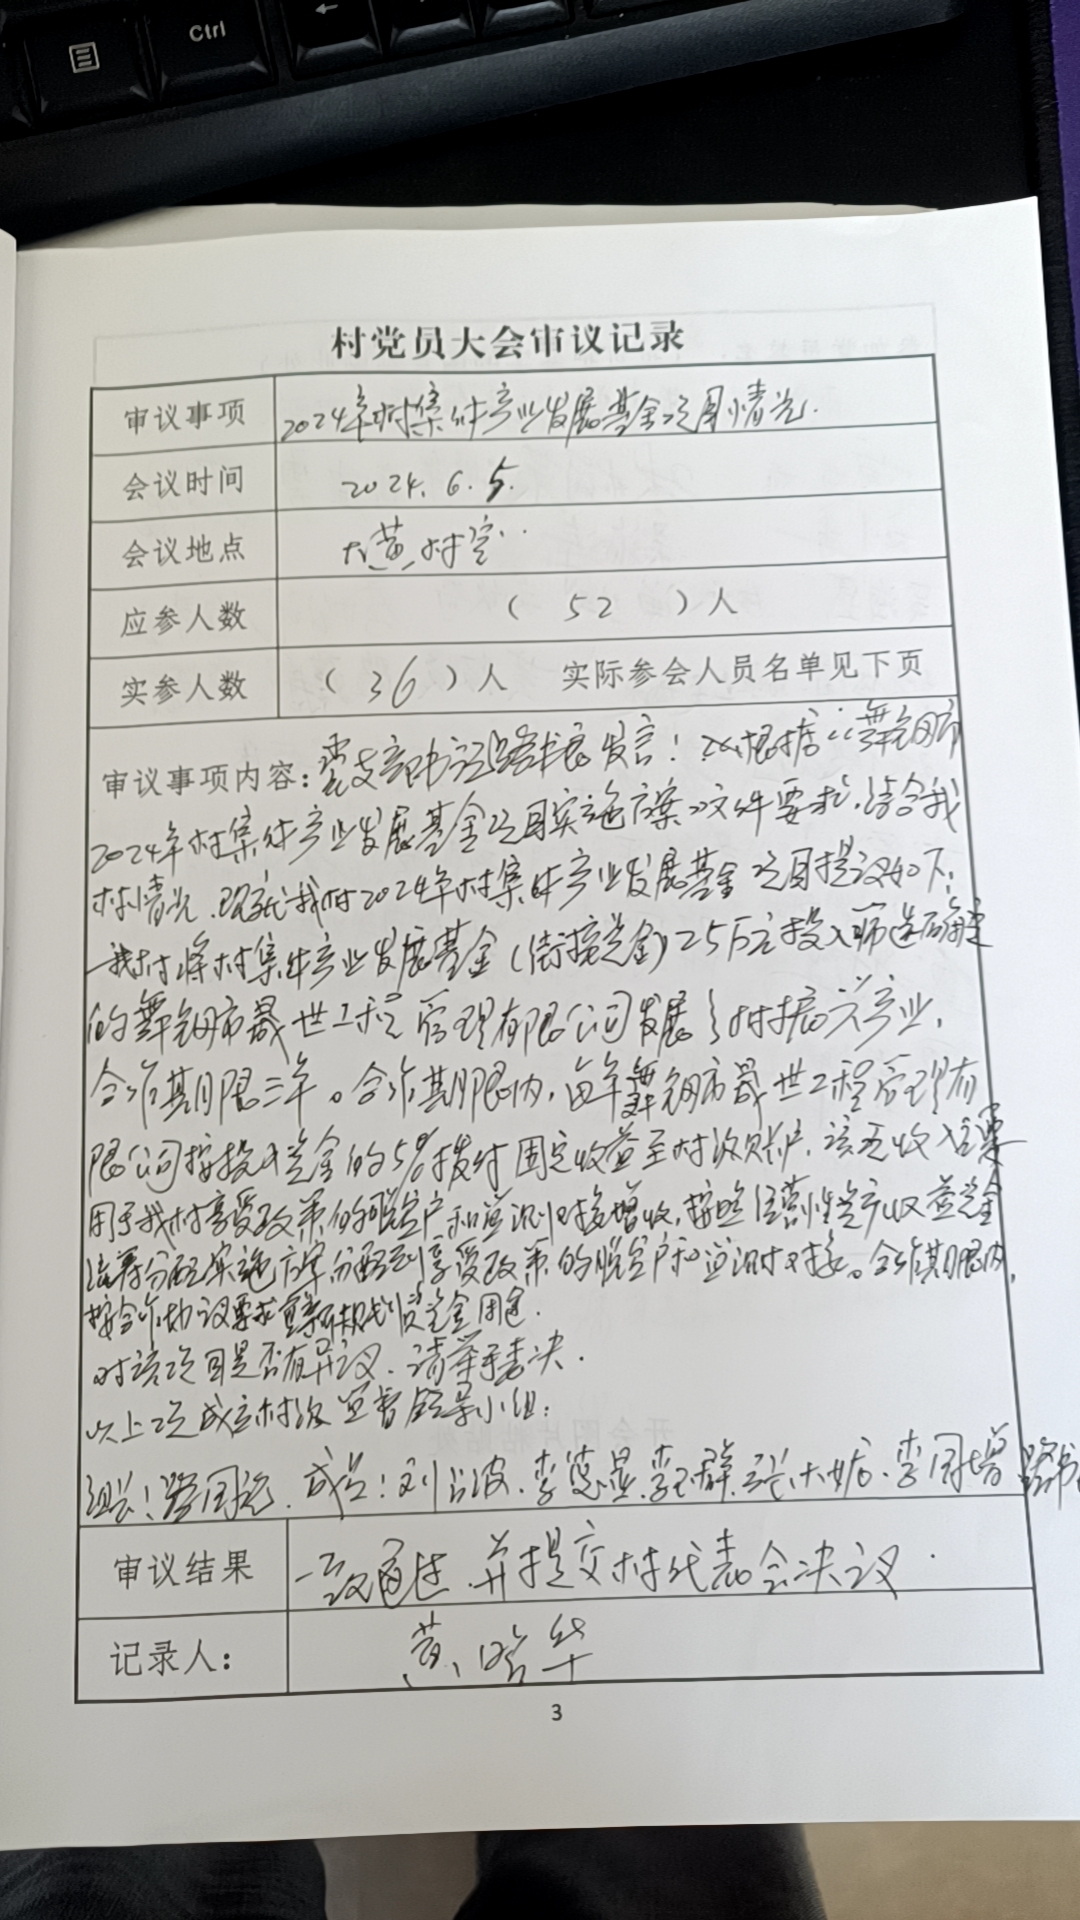 Ctrl
村党员大会审议记录
审议事项 2024年村集体产业发展基金项目情况.
会议时间 2024.6.5.
会议地点 大黄村室
应参人数 ( 52 )人
实参人数 (36)人 实际参会人员名单见下页
审议事项内容: 党支部书记 发言: 根据《舞钢市
2024年村集体产业发展基金项目实施方案》文件要求,结合我
村情况.现就我村2024年村集体产业发展基金项目提议如下:
一我村将村集体产业发展基金(衔接资金)25万元投入筛选确定
的舞钢市晟世工程管理有限公司发展乡村振兴产业,
合作期限三年。合作期限内,每年舞钢市晟世工程管理有
限公司按投入资金的5%拨付固定收益至村级账户.该项收入主要
用于我村享受政策的脱贫户和监测对象增收,按照经营性资产收益资金
分配实施方案分配到享受政策的脱贫户和监测对象。合作期限内,
按合作协议要求重新规划资金用途.
对该项目是否有异议.请举手表决.
以上项成立村级监督领导小组:
组长: 国 . 成员:刘 波.李 显. .张 .李国增
审议结果 一致通过.并提交村代表会决议.
记录人: 黄晗华
3